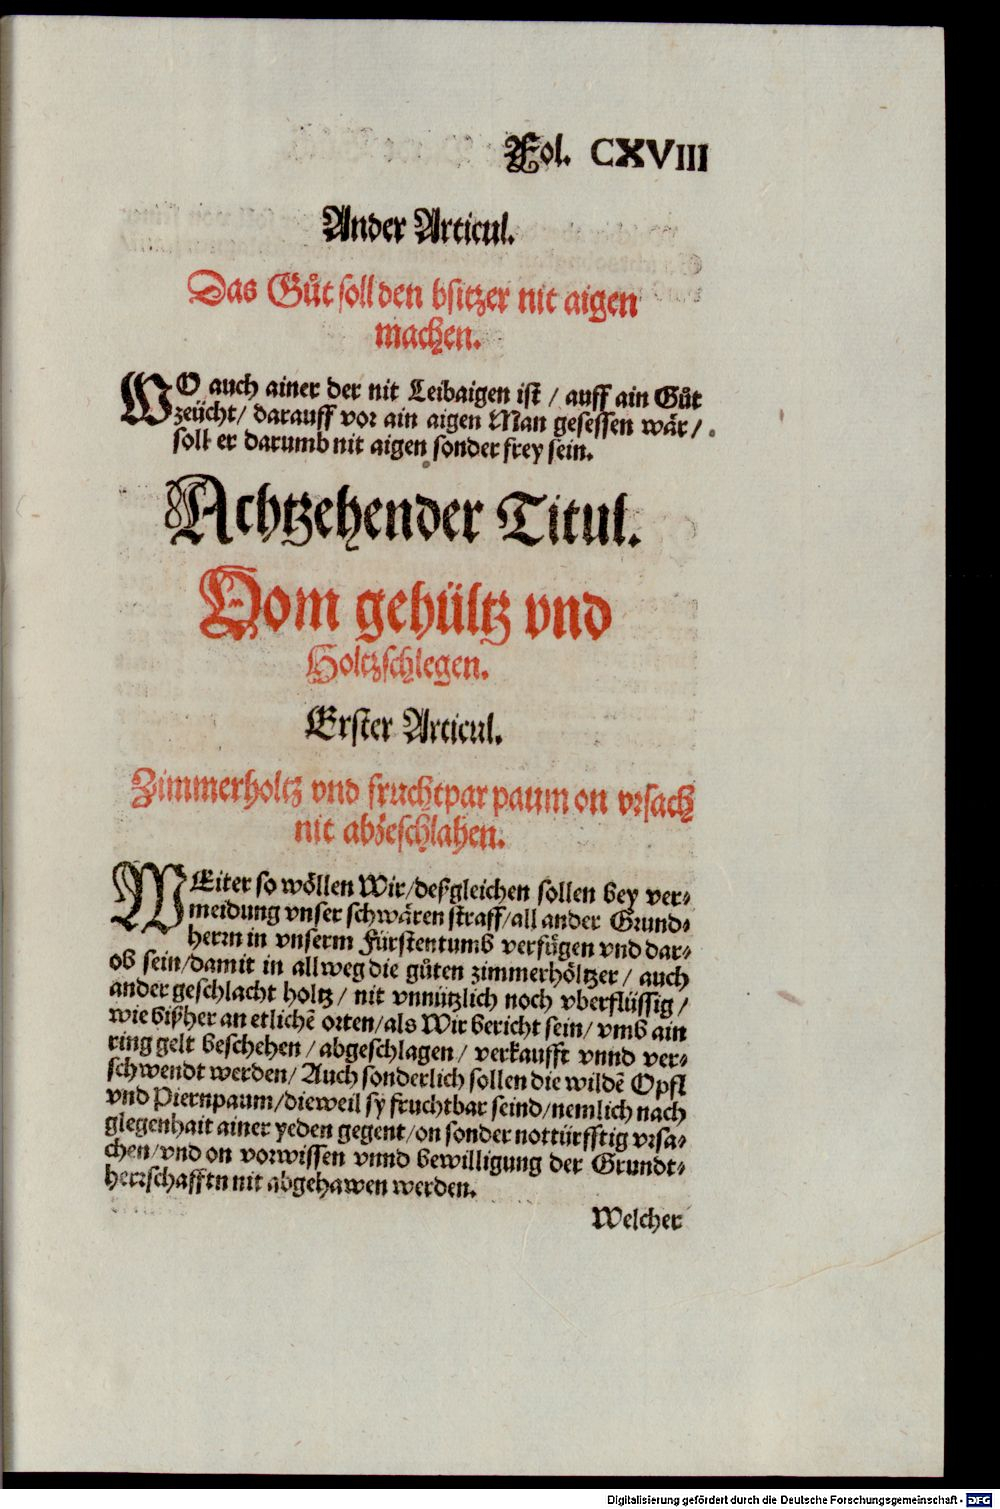 Fol. CXVIII
Ander Articul.
Das Gůt soll den bsitzer nit aigen
machen.
WO auch ainer der nit Leibaigen ist / auff ain Gůt
zeücht / darauff vor ain aigen Man gesessen wär /
soll er darumb nit aigen sonder frey sein.
Achtzehender Titul.
Vom gehültz vnd
Holtzschlegen.
Erster Articul.
Zimmerholtz vnd fruchtpar paum on vrsach
nit abzeschlahen.
WEiter so wöllen Wir / deßgleichen sollen bey ver-
meidung vnser schwären straff / all ander Grund-
herrn in vnserm Fürstentumb verfügen vnd dar-
ob sein / damit in allweg die gůten zimmerhöltzer / auch
ander geschlacht holtz / nit vnnützlich noch vberflüssig /
wie bißher an etlichē orten / als Wir bericht sein / vmb ain
ring gelt beschehen / abgeschlagen / verkaufft vnnd ver-
schwendt werden / Auch sonderlich sollen die wildē Opfl
vnd Piernpaum / dieweil sy fruchtbar seind / nemlich nach
glegenhait ainer yeden gegent / on sonder nottürfftig vrsa-
chen / vnd on vorwissen vnnd bewilligung der Grundt-
herrschafftn nit abgehawen werden.
Welcher
Digitalisierung gefördert durch die Deutsche Forschungsgemeinschaft - DFG